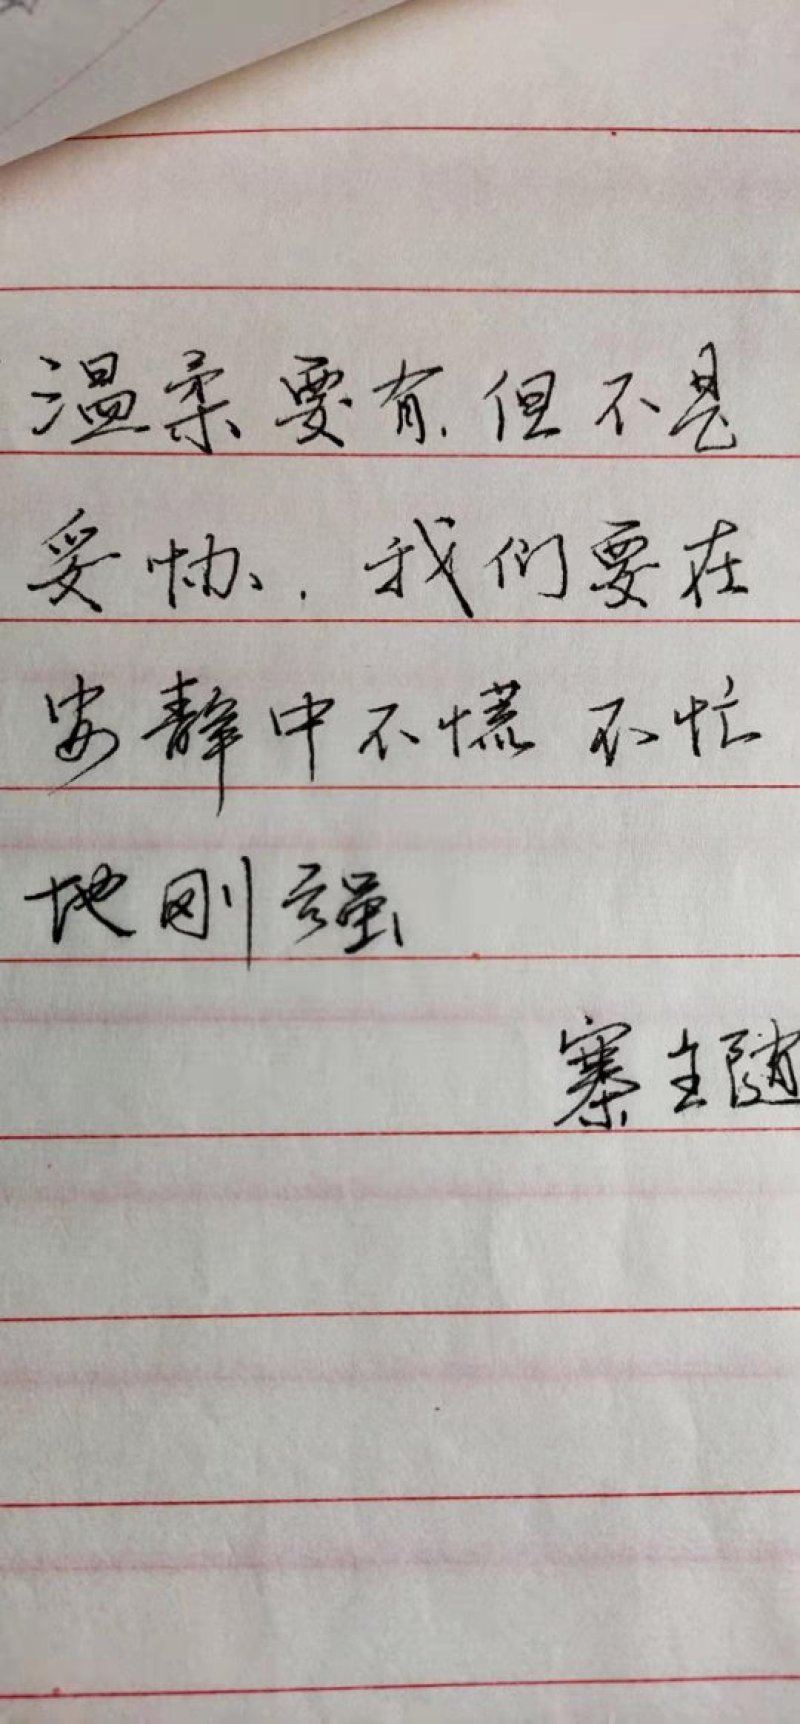 温柔要有,但不是
妥协,我们要在
安静中不慌不忙
地刚强
寨主随